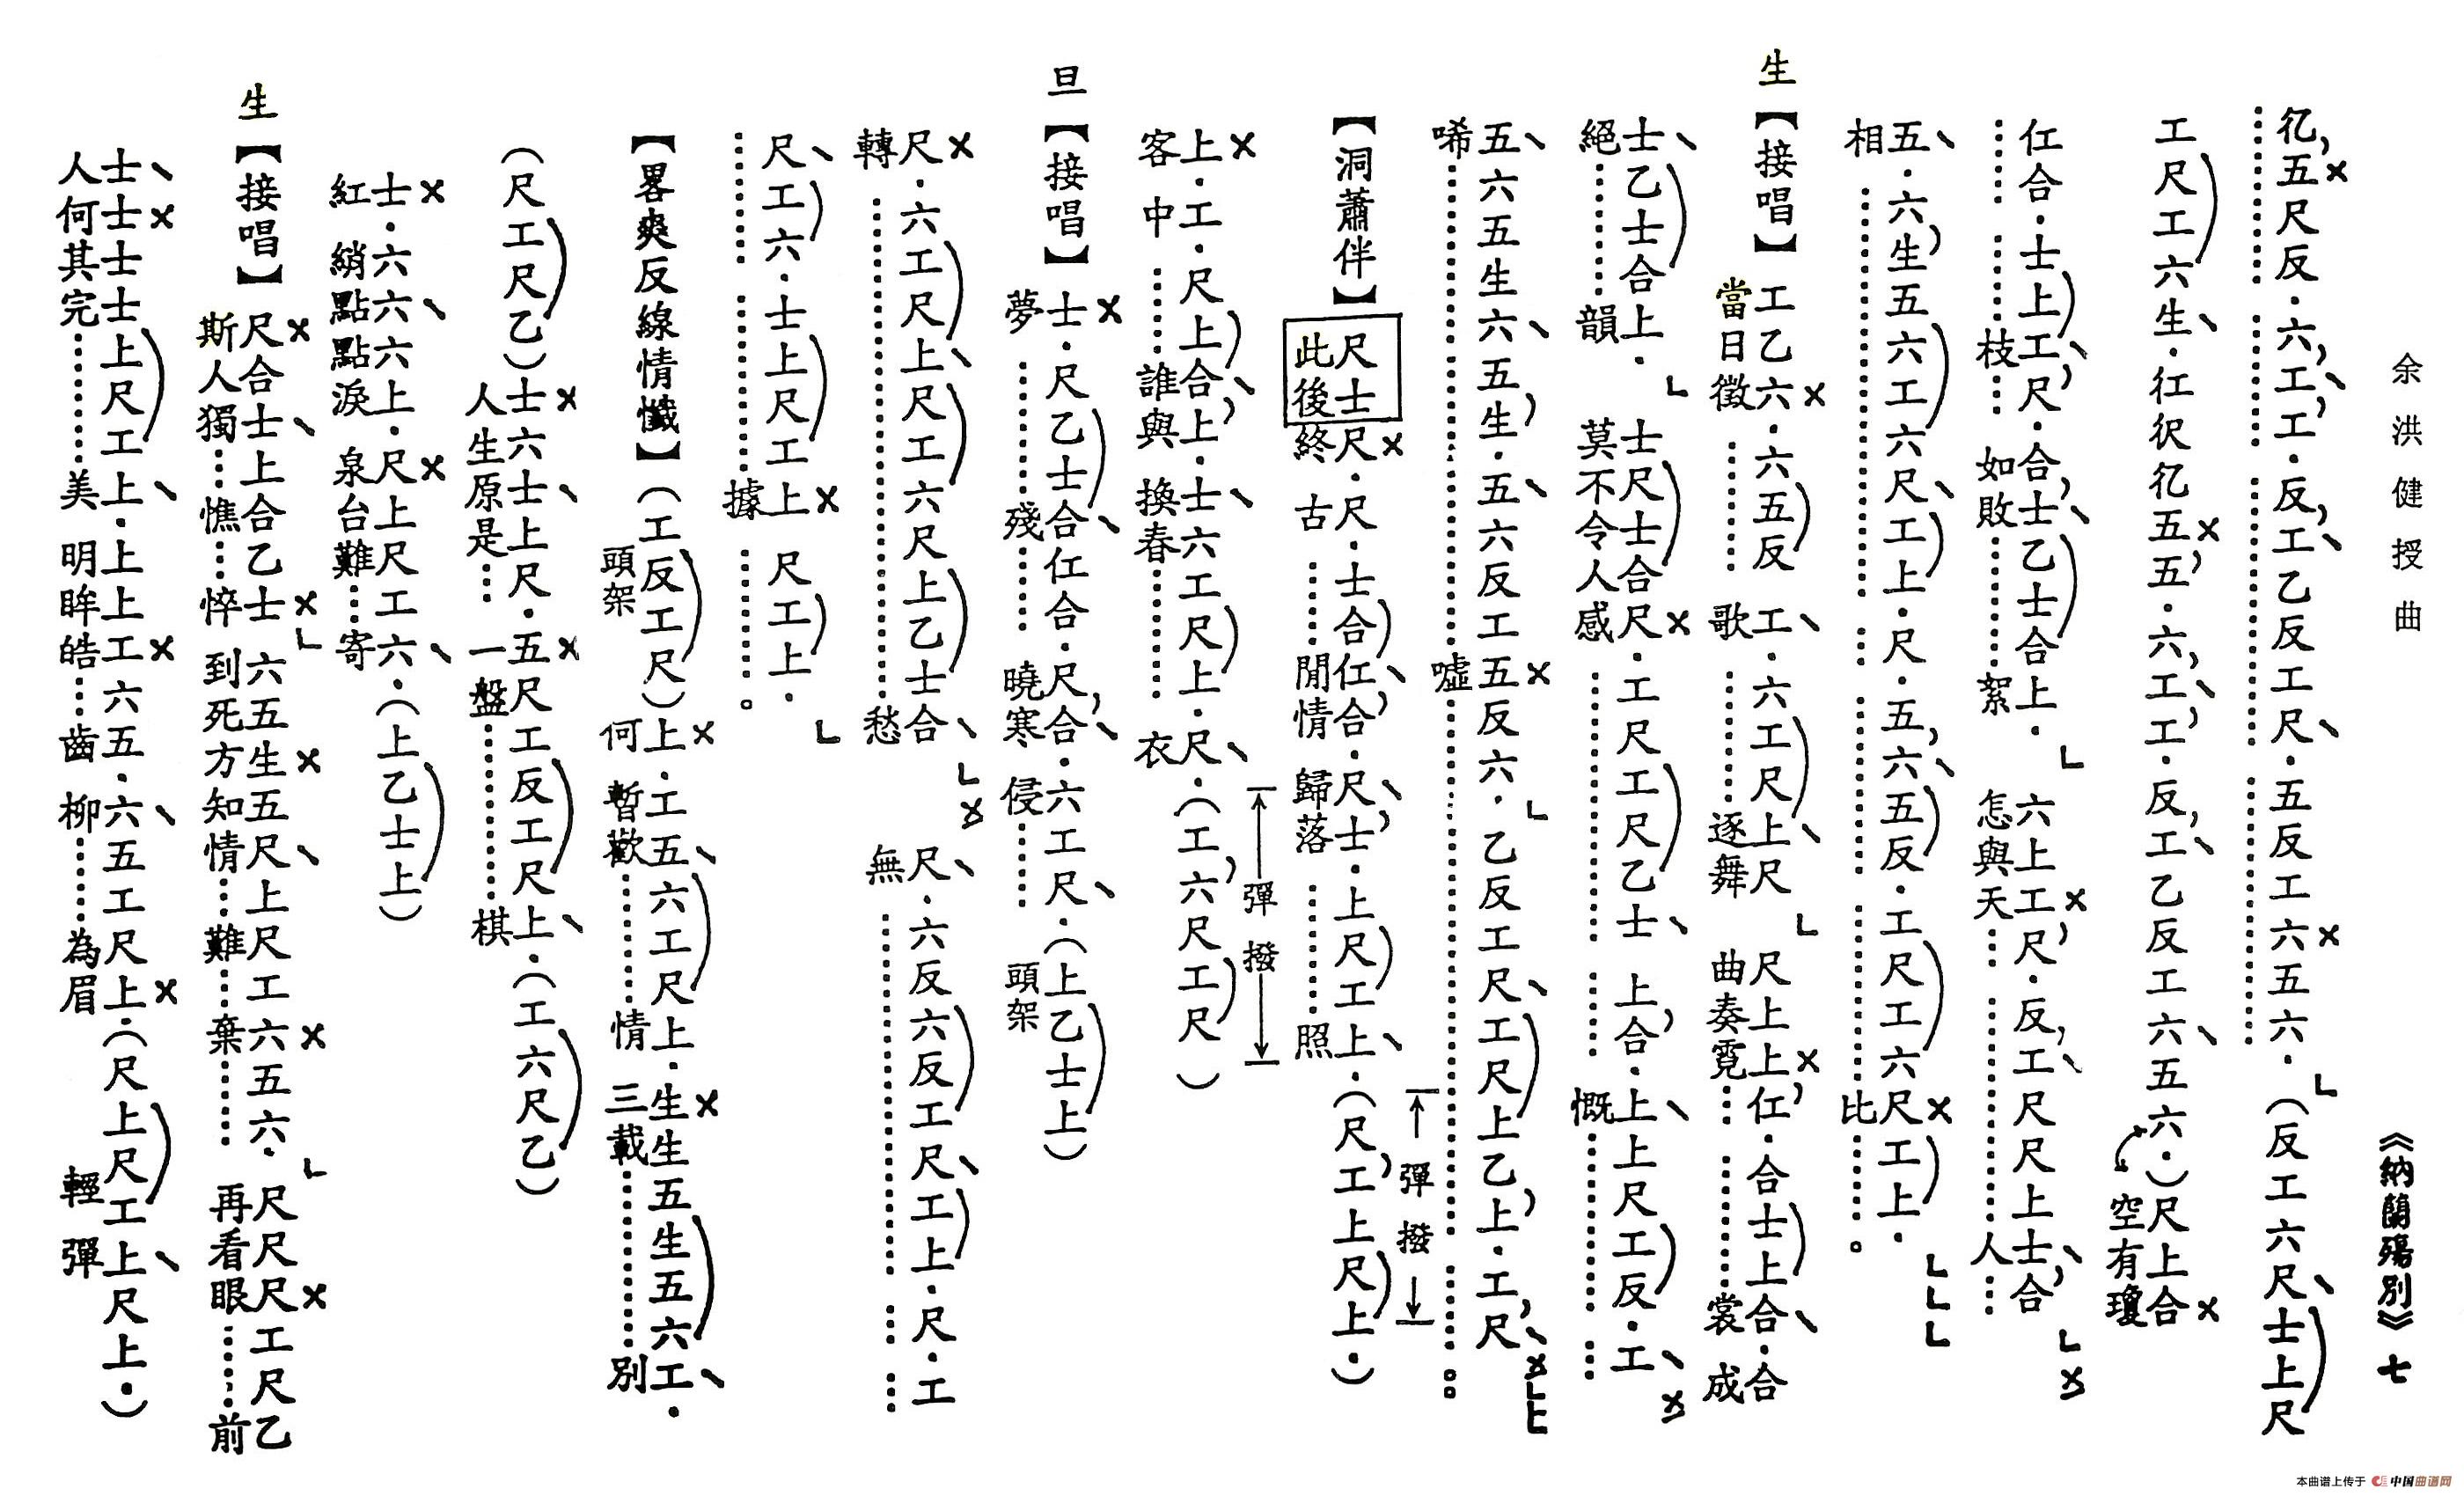 余洪健授曲
《納蘭殤別》七
亿,五尺反.六,工,工.反,工乙反工尺.五反工六五六.(反工六尺士上尺
工尺工六生.仜伬亿五五,.六,工,工.反,工乙反工六五六.)尺上合
空有瓊
仜合.士上工尺,.合,士乙士合上.六上工尺,.反,工尺尺上士合,
枝如敗絮怎與天人
五.六生,五六工六尺工上.尺.五,六五反.工尺工六尺工上.
相比。
生【接唱】工乙六.六五反工.六工尺上尺尺上上仜,.合士上合.合
當日徵歌逐舞曲奏霓裳成
士乙士合上.士尺士合尺.工尺工尺乙士上合,.上上尺工反.工
絕韻莫不令人感慨
五六五生六五生,.五六反工五反六.乙反工尺工尺上乙上,.工,尺
唏噓。。
【洞蕭伴】尺士尺.尺.士合仜合,.尺士,.上尺工上.(尺工,上尺上.)
此後終古閒情歸落照
彈撥
上.工.尺上合上,.士六工尺上.尺.(工,六尺工尺)
客中誰與換春衣
彈撥
旦【接唱】士.尺乙士合仜合.尺,合.六工尺.(上乙士上)
夢殘曉寒侵 頭架
尺.六工尺上尺工六尺上乙士合尺.六反六反工尺工上.尺.工
轉愁無
尺工六.士上尺工上尺工上.
據。
【畧爽反線情懺】(工反工尺)上.工五六工尺上.生生五生五六工.
頭架 何暫歡情三載別
(尺工尺乙)士六士上尺.五尺工反工尺上.(工六尺乙)
人生原是一盤棋
士.六六六上.尺上尺工六.(上乙士上)
紅綃點點淚泉台難寄
生【接唱】尺合士上合乙士六五生五尺上尺工六五六.尺尺尺工尺乙
斯人獨憔悴到死方知情難棄再看眼前
士士士士上尺工上.上上工六五.六五工尺上.(尺上尺工上尺上.)
人何其完美明眸皓齒柳為眉輕彈
本曲谱上传于 中国曲谱网